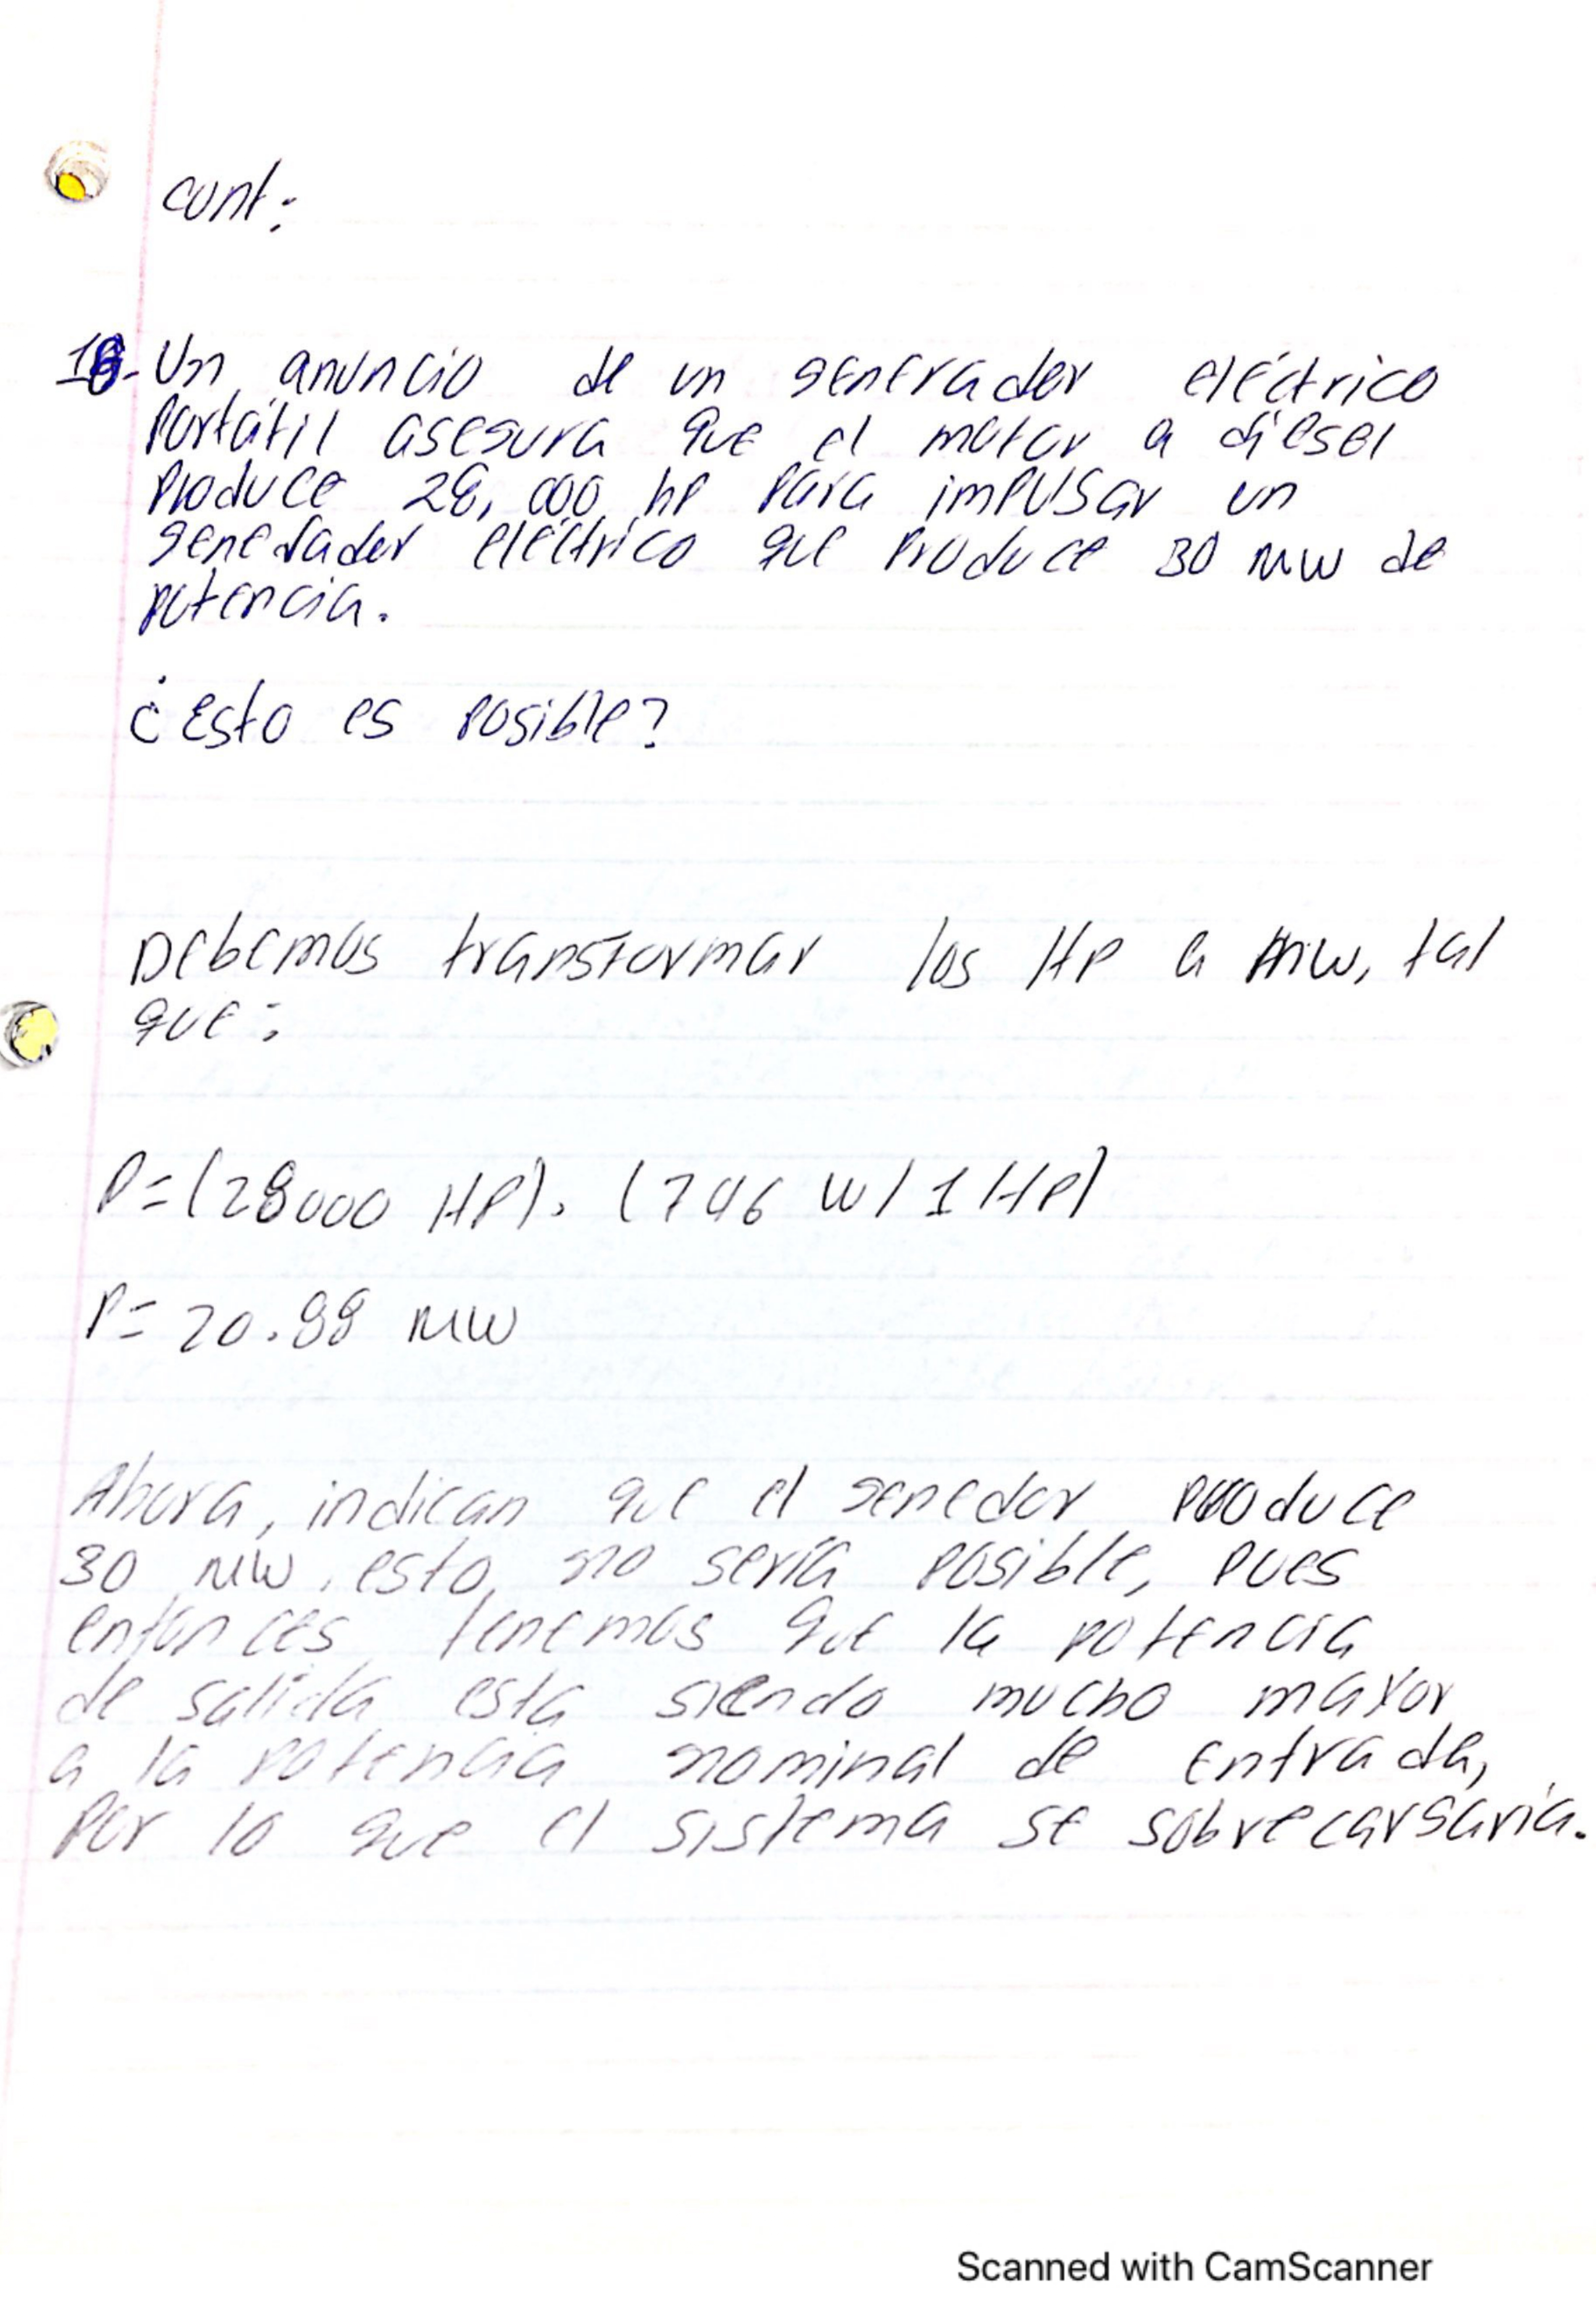 cont:
18- Un anuncio de un generador eléctrico
portátil asegura que el motor a diesel
produce 28,000 hp para impulsar un
generador eléctrico que produce 30 MW de
potencia.
¿Esto es posible?
Debemos transformar los HP a MW, tal
que:
P=(28000 HP). (746 W/1 HP)
P= 20.88 MW
Ahora, indican que el genedor produce
30 MW, esto, no sería posible, pues
entonces tenemos que la potencia
de salida esta siendo mucho mayor
a la potencia nominal de entrada,
Por lo que el sistema se sobrecargaría.
Scanned with CamScanner